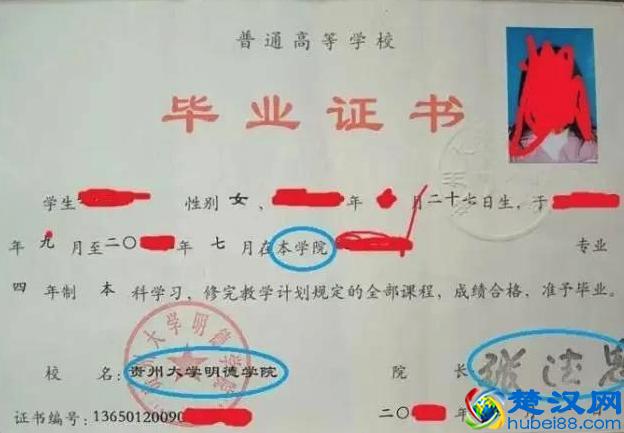 普通高等学校
毕业证书
学生 性别 女、 年 月二十七日生，于
年 九 月至二〇 年 七 月在本学院 专业
四 年制 本 科学习，修完教学计划规定的全部课程，成绩合格，准予毕业。
贵州大学明德学院
校 名：贵州大学明德学院 院 长
证书编号：13650120090 二〇 年
楚汉网
hubei88.com